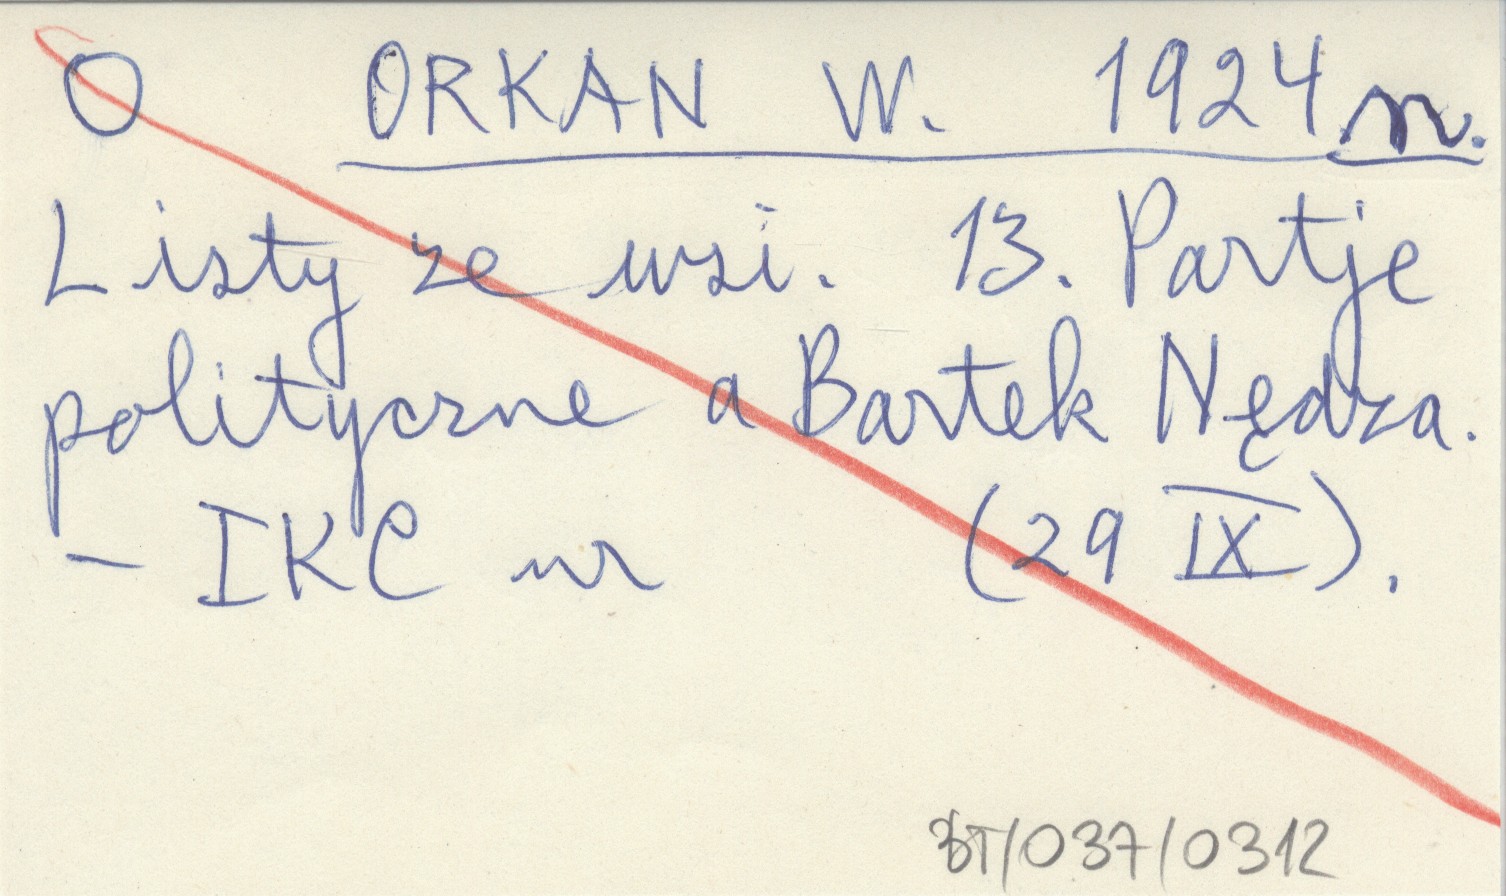 O ORKAN W. 1924 n.
Listy ze wsi. 13. Partje
polityczne a Bartek Nędza.
– IKC nr (29 IX).
BT/037/0312